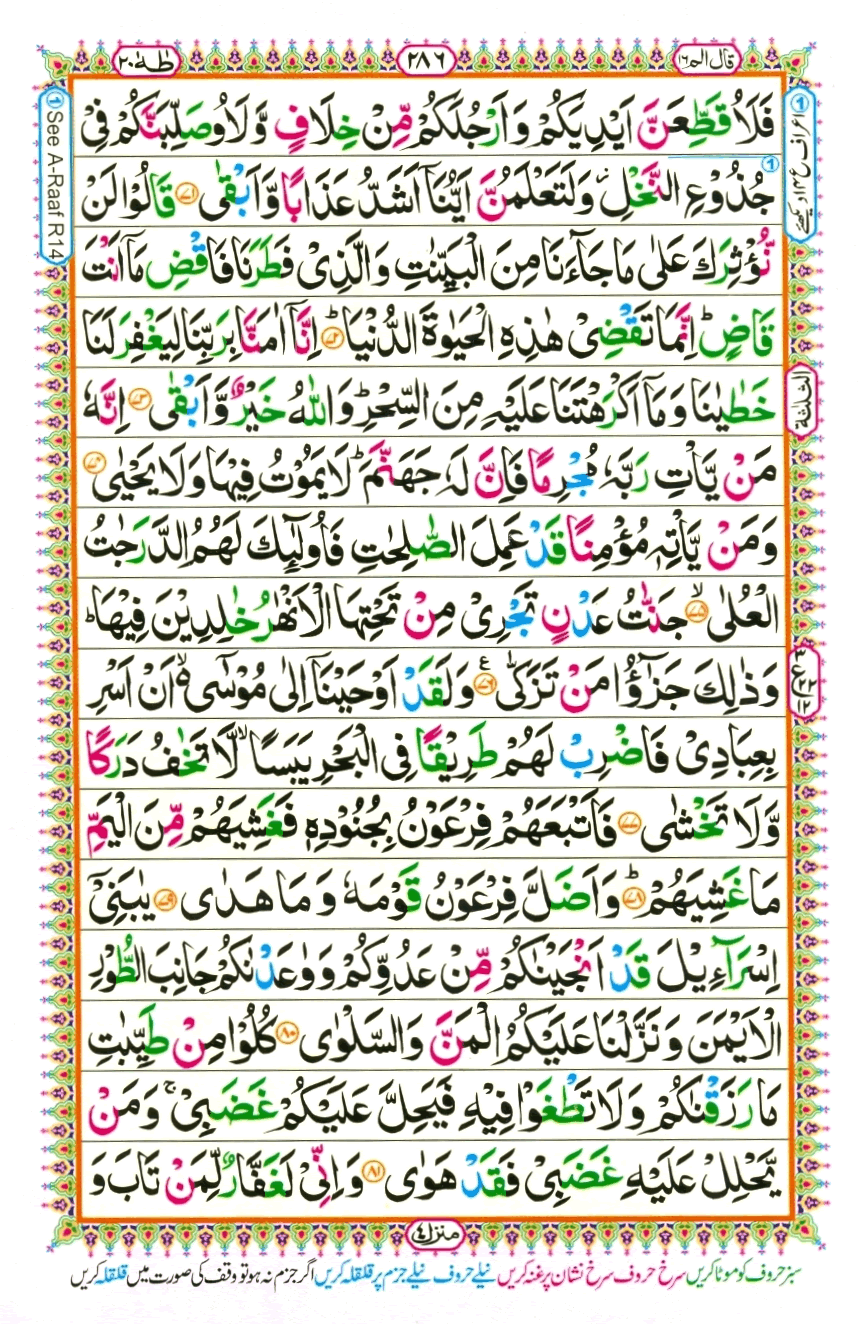 قال الم ١٦
٢٨٦
طٰهٰ ٢٠
فَلَاُقَطِّعَنَّ اَيْدِيَكُمْ وَاَرْجُلَكُمْ مِّنْ خِلَافٍ وَّلَاُوصَلِّبَنَّكُمْ فِیْ
جُذُوْعِ النَّخْلِ ؗ وَلَتَعْلَمُنَّ اَيُّنَاۤ اَشَدُّ عَذَابًا وَّاَبْقٰى ﴿٧١﴾ قَالُوْا لَنْ
نُّؤْثِرَكَ عَلٰى مَا جَآءَنَا مِنَ الْبَيِّنٰتِ وَالَّذِیْ فَطَرَنَا فَاقْضِ مَاۤ اَنْتَ
قَاضٍ ؕ اِنَّمَا تَقْضِیْ هٰذِهِ الْحَيٰوةَ الدُّنْيَا ؕ ﴿٧٢﴾ اِنَّاۤ اٰمَنَّا بِرَبِّنَا لِيَغْفِرَ لَنَا
خَطٰيٰنَا وَمَاۤ اَكْرَهْتَنَا عَلَيْهِ مِنَ السِّحْرِ ؕ وَاللّٰهُ خَيْرٌ وَّاَبْقٰى ﴿٧٣﴾ اِنَّهٗ
مَنْ يَّاْتِ رَبَّهٗ مُجْرِمًا فَاِنَّ لَهٗ جَهَنَّمَ ؕ لَا يَمُوْتُ فِيْهَا وَلَا يَحْيٰى ﴿٧٤﴾
وَمَنْ يَّاْتِهٖ مُؤْمِنًا قَدْ عَمِلَ الصّٰلِحٰتِ فَاُولٰٓئِكَ لَهُمُ الدَّرَجٰتُ
الْعُلٰى ۙ ﴿٧٥﴾ جَنّٰتُ عَدْنٍ تَجْرِیْ مِنْ تَحْتِهَا الْاَنْهٰرُ خٰلِدِيْنَ فِيْهَا ؕ
وَذٰلِكَ جَزٰٓؤُا مَنْ تَزَكّٰى ﴿٧٦﴾ ع وَلَقَدْ اَوْحَيْنَاۤ اِلٰى مُوْسٰۤى ۙ۬ اَنْ اَسْرِ
بِعِبَادِیْ فَاضْرِبْ لَهُمْ طَرِيْقًا فِی الْبَحْرِ يَبَسًا ۙ لَّا تَخٰفُ دَرَكًا
وَّلَا تَخْشٰى ﴿٧٧﴾ فَاَتْبَعَهُمْ فِرْعَوْنُ بِجُنُوْدِهٖ فَغَشِيَهُمْ مِّنَ الْيَمِّ
مَا غَشِيَهُمْ ؕ ﴿٧٨﴾ وَاَضَلَّ فِرْعَوْنُ قَوْمَهٗ وَمَا هَدٰى ﴿٧٩﴾ يٰبَنِیْۤ
اِسْرَآءِيْلَ قَدْ اَنْجَيْنٰكُمْ مِّنْ عَدُوِّكُمْ وَوٰعَدْنٰكُمْ جَانِبَ الطُّوْرِ
الْاَيْمَنَ وَنَزَّلْنَا عَلَيْكُمُ الْمَنَّ وَالسَّلْوٰى ﴿٨٠﴾ كُلُوْا مِنْ طَيِّبٰتِ
مَا رَزَقْنٰكُمْ وَلَا تَطْغَوْا فِيْهِ فَيَحِلَّ عَلَيْكُمْ غَضَبِیْ ۚ وَمَنْ
يَّحْلِلْ عَلَيْهِ غَضَبِیْ فَقَدْ هَوٰى ﴿٨١﴾ وَاِنِّیْ لَغَفَّارٌ لِّمَنْ تَابَ وَ
① See A-Raaf R14
① اعراف ع ١٤ دیکھئے
الثلٰثة
ع
منزل ٤
سبز حروف کو موٹا کریں سرخ حروف سرخ نشان پر غنہ کریں نیلے حروف نیلے جزم پر قلقلہ کریں اگر جزم نہ ہو تو وقف کی صورت میں قلقلہ کریں